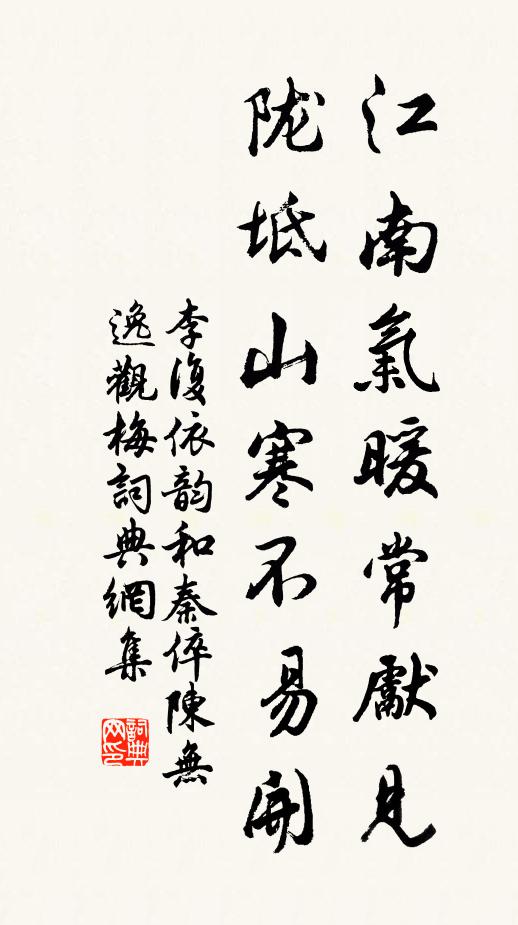 江南氣暖常獻見
陇坻山寒不易開
李復依韵和秦倅陳無
逸觀梅詞典網集
詞典
网印